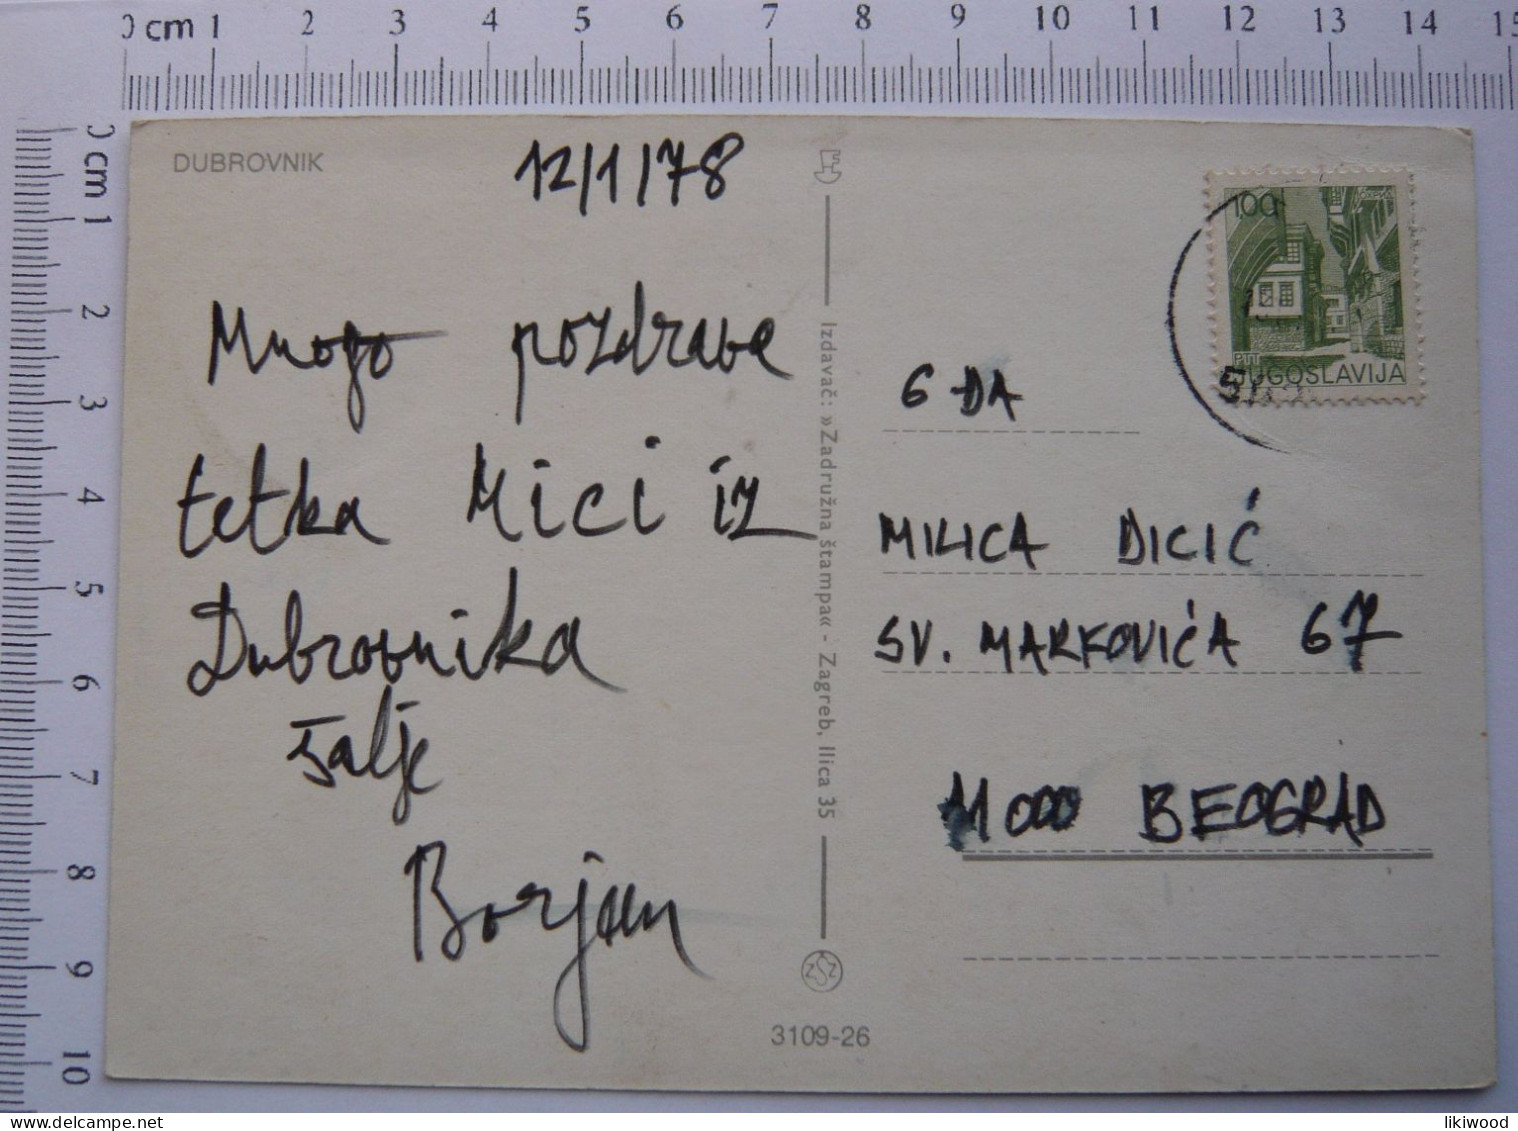 0 cm 1 2 3 4 5 6 7 8 9 10 11 12 13 14 15
0 cm 1 2 3 4 5 6 7 8 9 10
DUBROVNIK
12/1/78
Mnogo pozdrava
tetka Mici iz
Dubrovnika
šalje
Borjan
Izdavač: »Zadružna štampa« - Zagreb, Ilica 35
ZSZ
3109-26
100
PTT
JUGOSLAVIJA
G ĐA
MILICA DICIĆ
SV. MARKOVIĆA 67
11000 BEOGRAD
likiwood